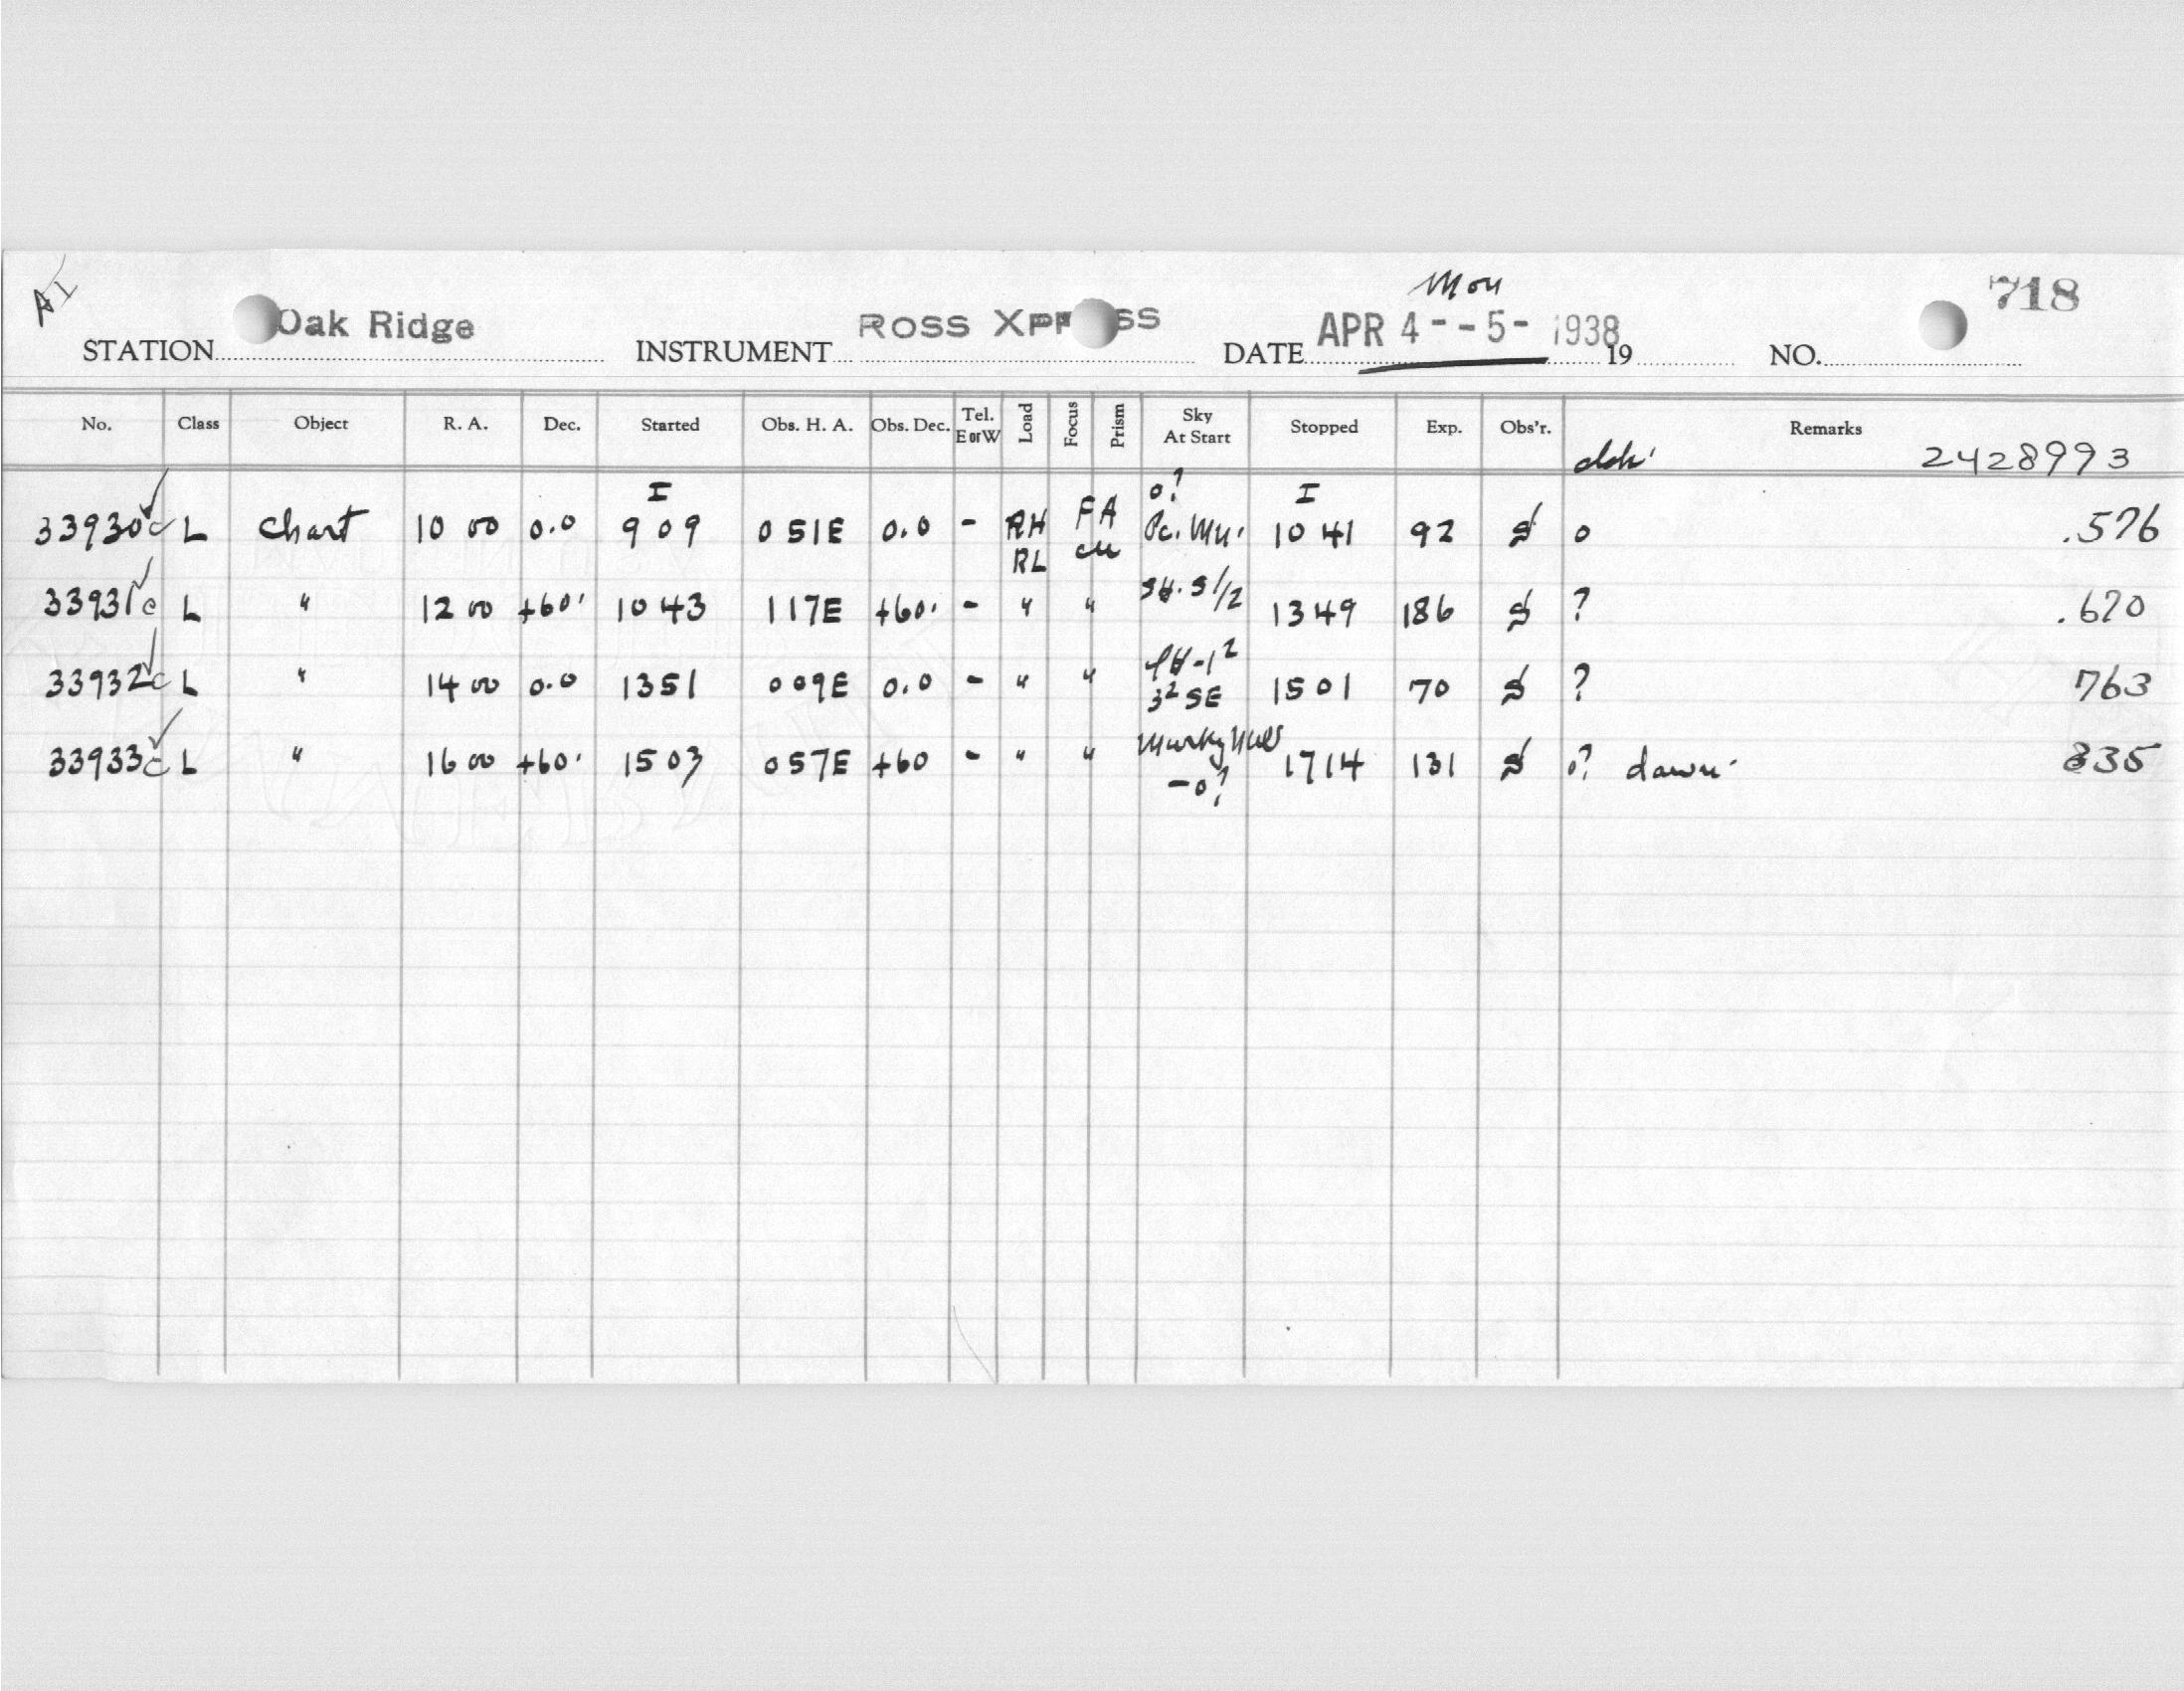 Mon
718
STATION Oak Ridge INSTRUMENT ROSS XPRESS DATE APR 4 - - 5 - 1938 19 NO.
No. Class Object R. A. Dec. Started Obs. H. A. Obs. Dec. Tel. E or W Load Focus Prism Sky At Start Stopped Exp. Obs'r. Remarks
2428993
I o? I
33930c L Chart 10 00 0.0 9 09 0 51E 0.0 - RH RL FA 10 41 92 S o .576
33931c L " 12 00 +60. 10 43 1 17E +60. - " " 13 49 186 S ? .670
33932c L " 14 00 0.0 13 51 0 09E 0.0 - " " 3² SE 15 01 70 S ? 763
33933c L " 16 00 +60. 15 03 0 57E +60 - " " Murky -o? 17 14 131 S o? dawn. 835